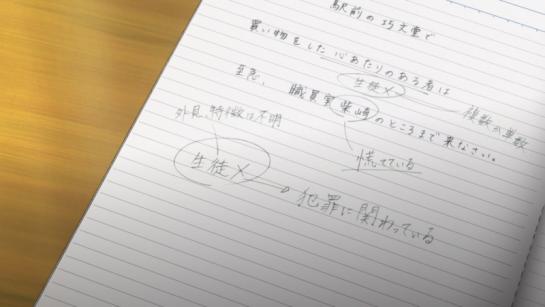 駅前の巧文堂で
買い物をした心あたりのある者は
生徒X
複数か単数
至急、職員室柴崎のところまで来なさい。
外見、特徴は不明
慌てている
生徒X
犯罪に関わっている